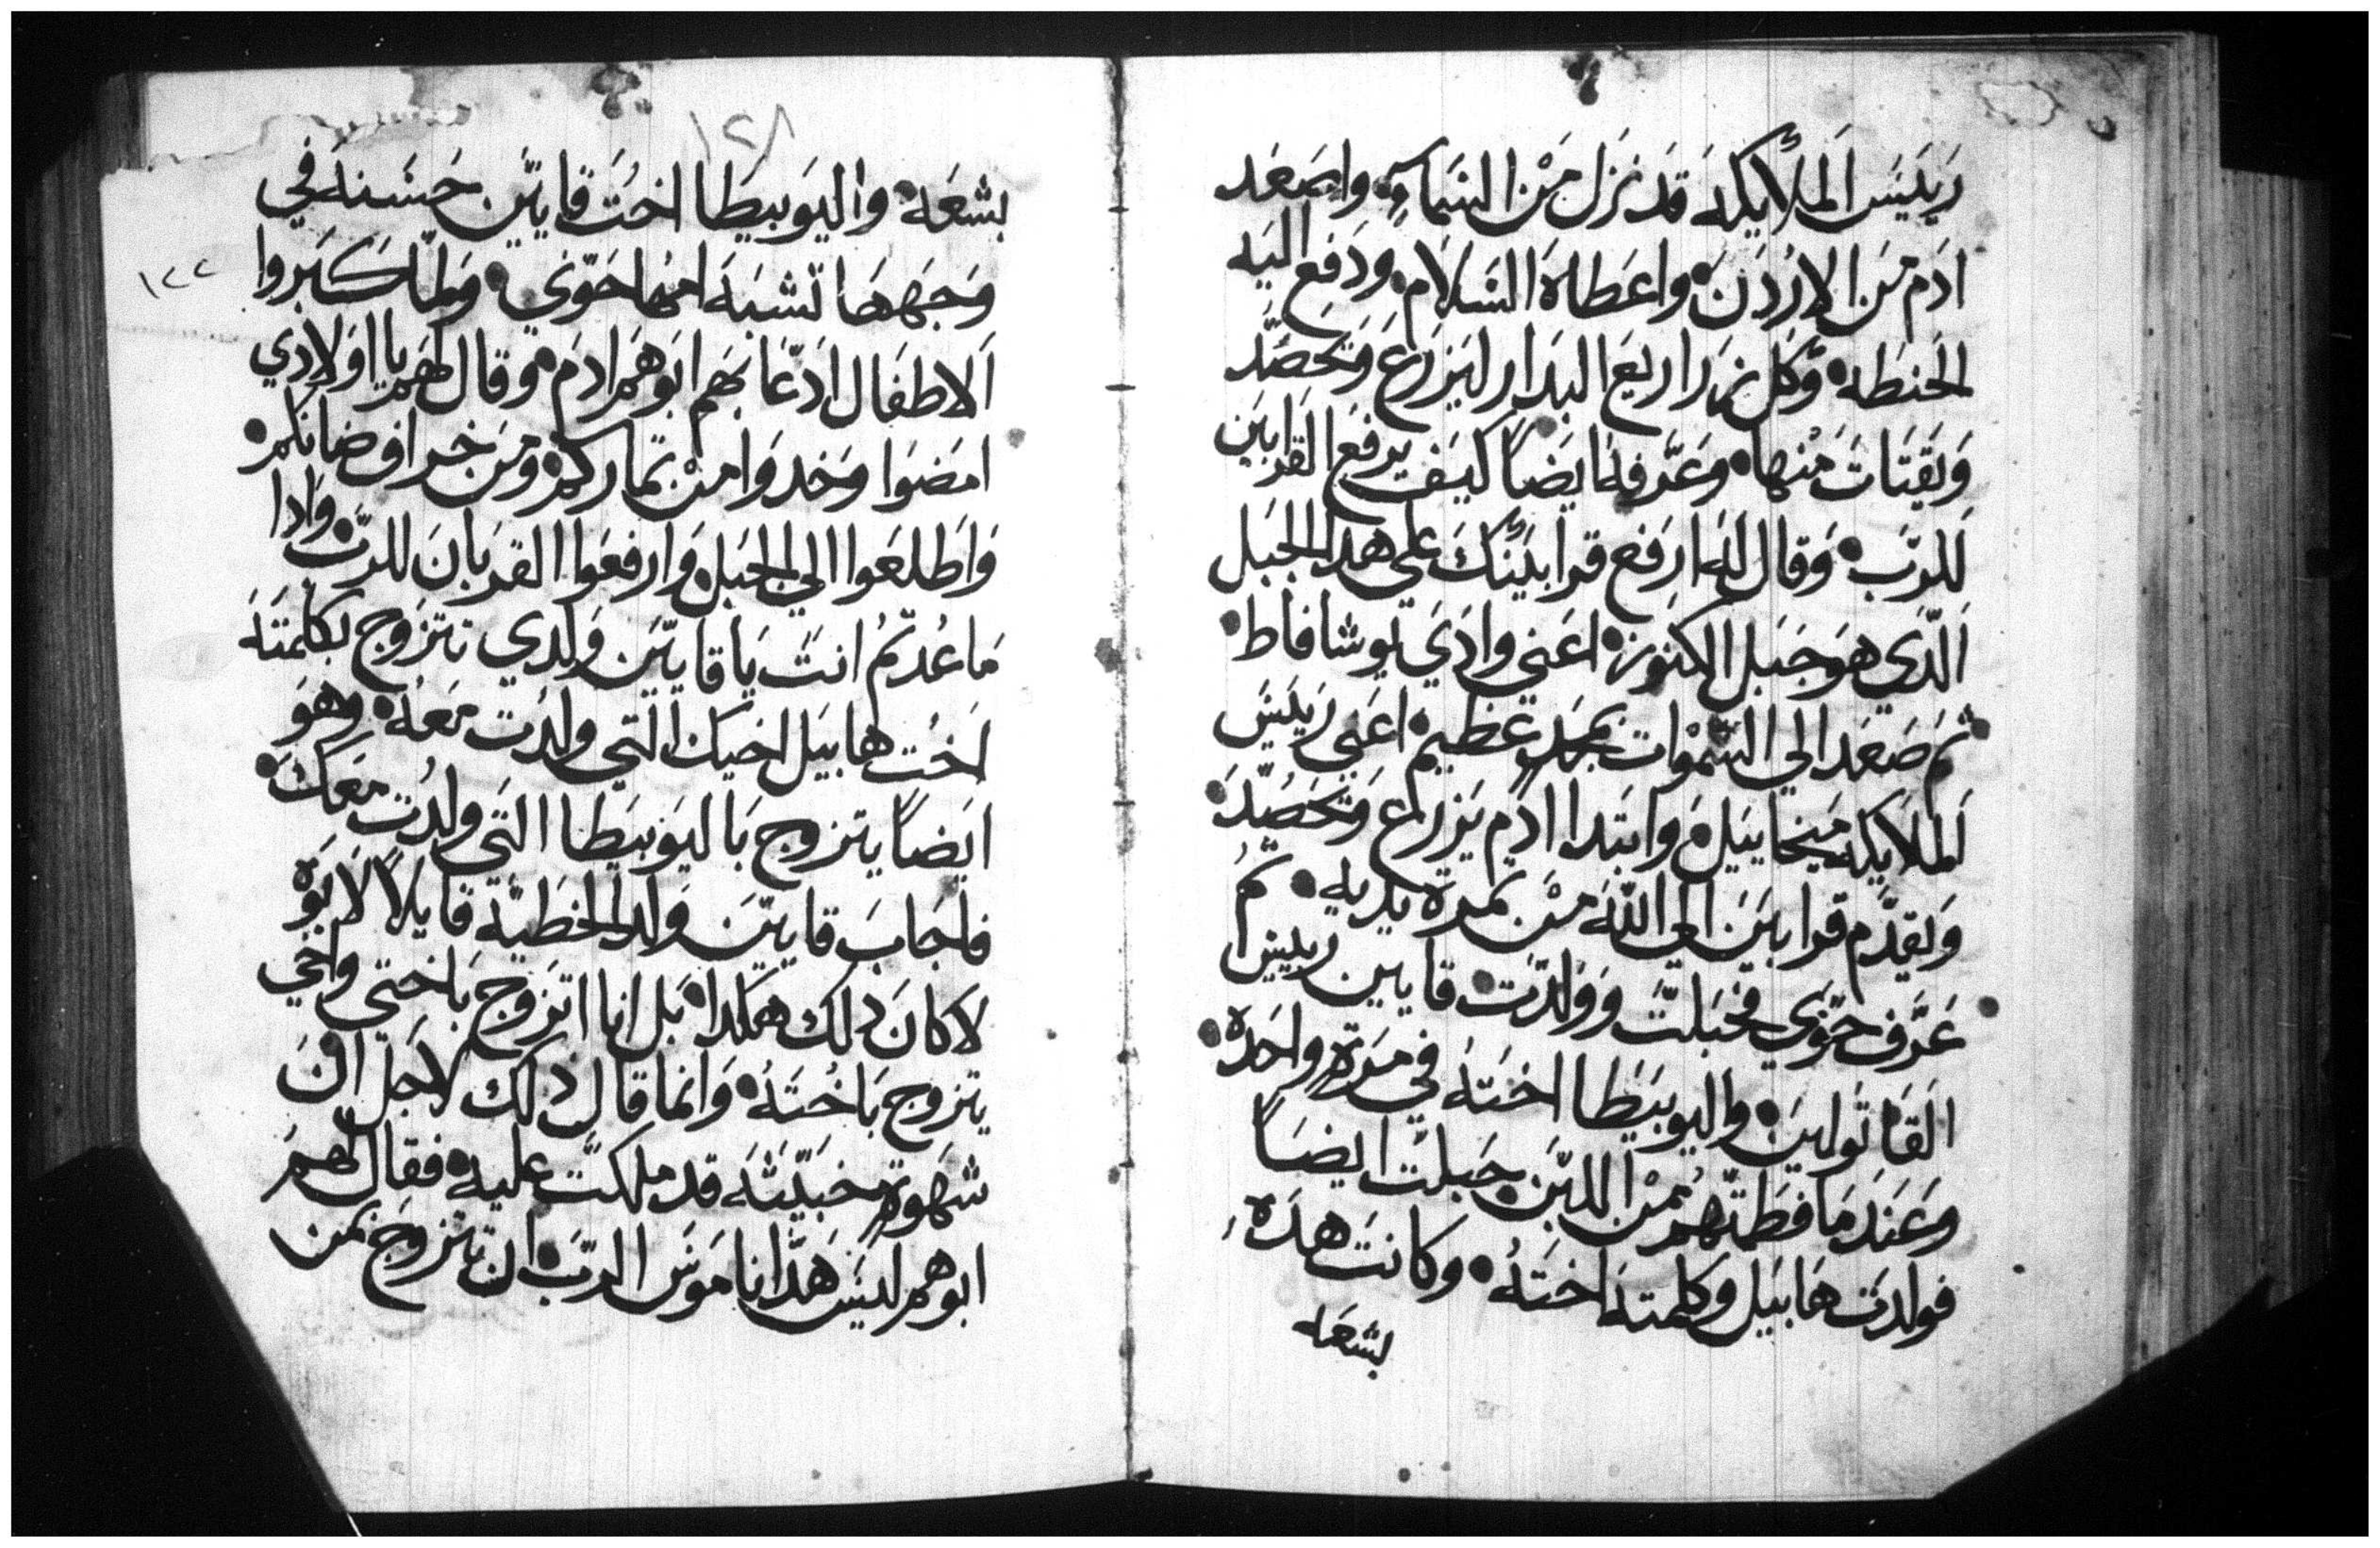 رَيَيسَ اَلملأيكه قد نزل مَنْ السَماءِ واصَعَد
ادَم مَن الارُدَنَ واعَطاهَ السَلامَ ودَفع اليَه
الحَنطَه وَكل زراريع البدار ليَزرَع وَيحَصَدّ
وَيقَتاتَ مَنها وعَرّفه ايضاً كيَف يرفعَ القرابيَن
لَلرَبّ وَقال له ارفع قرابَينكَ علَى هدا الجبَل
اَلدّي هوَ جَبَل الكنوز اعَني وادَي يوشافاط
ثمَ صَعَد الي السَموَات بمجَد عَظيم اعَني رَيَيسَ
اَلملايكه ميَخاييل وابَتدا ادَم يزرع وَيحَصَدّ
وَيقدّم قرابيَن الي اللهَ مَنْ ثمرة يديه ثم
عَرّف حَوّي فحَبَلتّ وَوَلدَتّ قايين رييسَ
القَاتولينَ واليوبيَطا اختَه في مَرةٍ واحَدة
وعَندَما فطمَتّهم مْن اللبَن حَبلتّ ايضَاً
فولدَت هَابيَل وكلمتَه اختَهُ وكانتَ هدَه
بشعَه
١٢٨
بشعَه واليَوبيطَا اختَ قايَيّن حَسَنه في
وَجَههَا تّشبَه امَها حَوّي ولماّ كَبَروا
اَلاطفَال ادّعَا بَهم ابَوهَم ادَم وقال لهَم يا اوَلادَي
امَضَوا وَخدَوا منْ تمّاركم ومَن خراف ضانكم
وَاطلعَوا الي الجبَل وَارفعَوا القربَانَ للربّ وَادا
مَا عُدتّمُ انتَ يَا قايَيّن وَلدي تتزوج بكلمَتَه
اَختُ هابيَل اخيك التي ولدَت مَعَهُ وهوَ
ايَضاً يتزوج بَاليَوبيَطا التَي ولدُت مَعَك
فاجَابَ قايَيّن وَلد الخطَيّه قايلاً لاَبَوّه
لا كانَ دَلك هَكدا بَل انا اتزوجَ بَاختي واخَي
يتزوج بَاختَهُ وَانما قال دَلك لاجَل انَ
شهَوةٍ خبَيّثَه قد ملكتّ عليه فقال لهَم
ابوهم ليَسَ هَدّا ناموَسَ الربّ ان تتزوج بمن
١٢٢